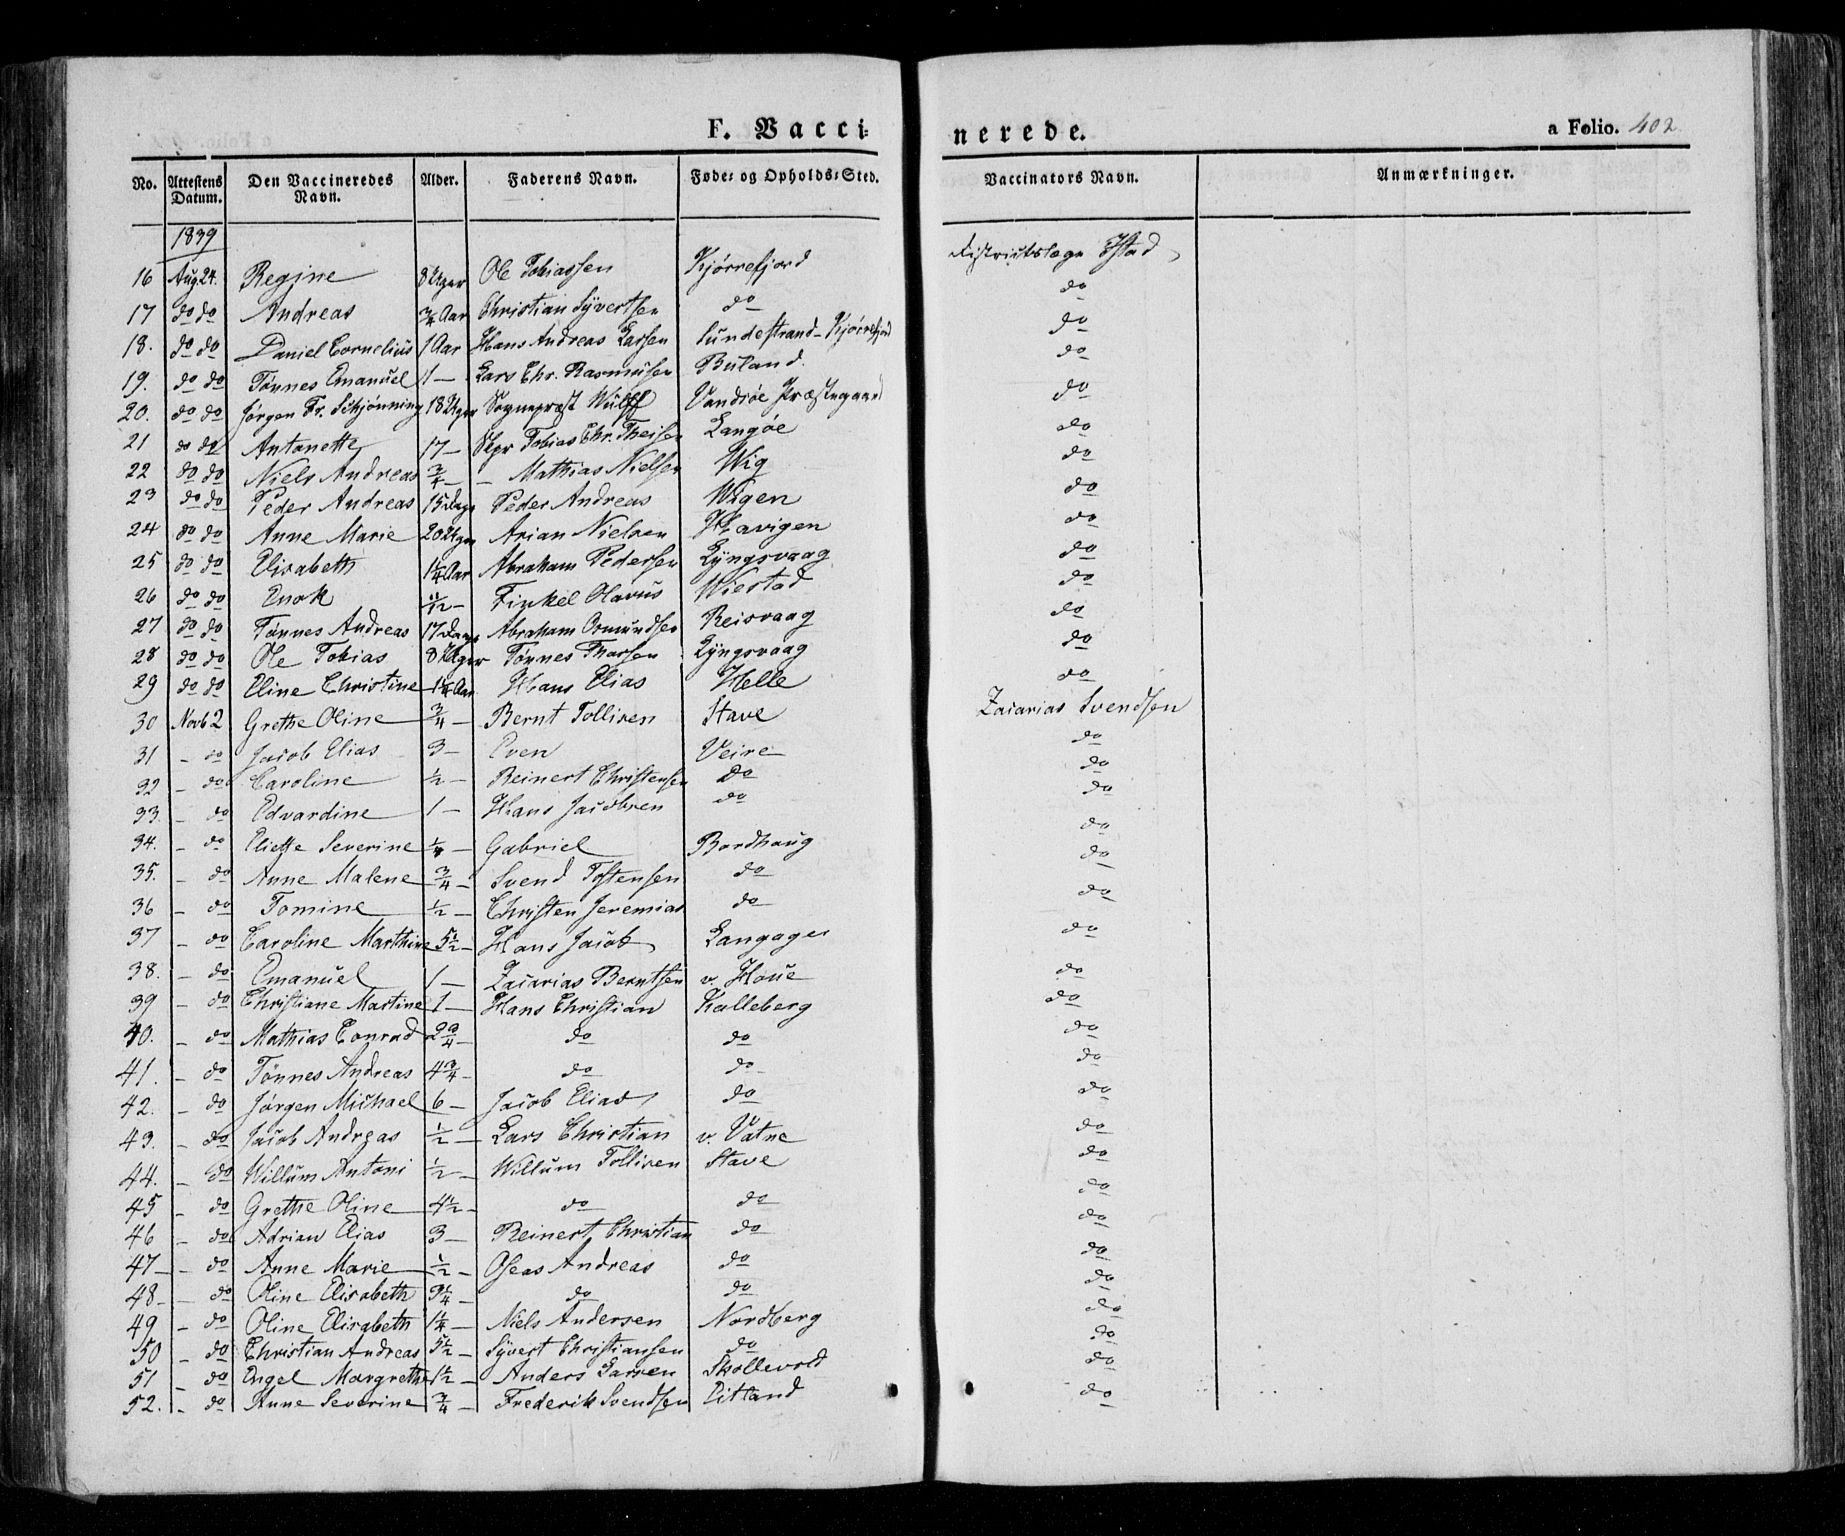 F. Vacci= nerede. a Folio. 402.
No. Attestens Datum. Den Vaccineredes Navn. Alder. Faderens Navn. Føde= og Opholds=Sted. Vaccinators Navn. Anmærkninger.
1839
16 Aug. 24. Regine 8 Uger Ole Tobiassen Kjørrefjord Districtslæge Ystad
17 do do Andreas 3/4 Aar Christian Syvertsen do do
18. do do Daniel Cornelius 1 Aar Hans Andreas Larsen Sundestrand - Kjørrefjord do
19. do do Tønnes Emanuel 1 — Lars Chr. Rasmusen Buland. do
20. do do Jørgen Fr. Schjønning 18 Uger Sognepræst Wulff Vandsøe Præstegaard do
21 do do Antonette 17 — Skpr Tobias Chr. Theisen Langøe do
22 do do Niels Andreas 3/4 — - Mathias Nielsen Wig do
23 do do Peder Andreas 15 Dage Peder Andreas Wigen do
24 do do Anne Marie 20 Uger Arian Nielsen Havigen do
25 do do Elisabeth 1 1/4 Aar Abraham Pedersen Lyngsvaag do
26 do do Enok 11/12 — Finkel Olavus Wiestad do
27 do do Tønnes Andreas 17 Dage Abraham Osmundsen Reisvaag do
28 do do Ole Tobias 8 Uger Tønnes Tharsen Lyngsvaag do
29 do do Eline Christine 1 1/4 Aar Hans Elias Helle do
30 Novb 2 Grethe Oline 3/4 — Bernt Tollisen Stave Zacarias Svendsen
31 - do Jacob Elias 3 — Even Veire do
32 - do Caroline 1/2 — Reinert Christensen Do do
33 - do Edvardine 1 — Hans Jacobsen do do
34. - do Eliette Severine 1/4 — Gabriel Bordhaug do
35. - do Anne Malene 3/4 — Svend Tostensen do do
36 - do Tomine 1/2 — Christen Jeremias do do
37 - do Caroline Marthine 5 1/2 — Hans Jacob Langager do
38. - do Emanuel 1 — Zacarias Berntsen v. Houe do
39 - do Christiane Martine 1 — Hans Christian Kalleberg do
40. - do Mathias Conrad 2 3/4 — do do do
41. - do Tønnes Andreas 4 3/4 — do do do
42. - do Jørgen Michael 6 — Jacob Elias do do
43. - do Jacob Andreas 1/2 — Lars Christian v. Vatne do
44. - do Willum Antoni 1/2 — Willum Tollisen Stave do
45 - do Grethe Oline 4 1/2 — do do do
46 - do Adrian Elias 3 — Reinert Christian do do
47 - do Anne Marie 1/2 — Oseas Andreas do do
48 - do Oline Elisabeth 3 1/4 — do do do
49 - do Oline Elisabeth 1 1/4 — Niels Andersen Nordberg do
50 - do Christian Andreas 5 1/2 — Syvert Christiansen do do
51 - do Engel Margrethe 1 1/2 — Anders Larsen Skollevold do
52. - do Anne Severine 3/4 — Frederik Svendsen Eitland do